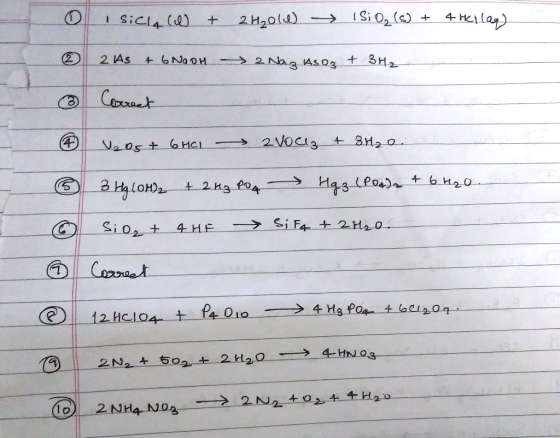 ① 1 SiCl4 (l) + 2H2O(l) → 1SiO2 (s) + 4HCl(aq)
② 2 As + 6NaOH → 2 Na3 AsO3 + 3H2
③ Correct
④ V2O5 + 6HCl → 2VOCl3 + 3H2O.
⑤ 3 Hg(OH)2 + 2H3 PO4 → Hg3 (PO4)2 + 6H2O.
⑥ SiO2 + 4HF → SiF4 + 2H2O.
⑦ Correct
⑧ 12HClO4 + P4O10 → 4H3PO4 + 6Cl2O7.
⑨ 2N2 + 5O2 + 2H2O → 4HNO3
⑩ 2NH4NO3 → 2N2 + O2 + 4H2O